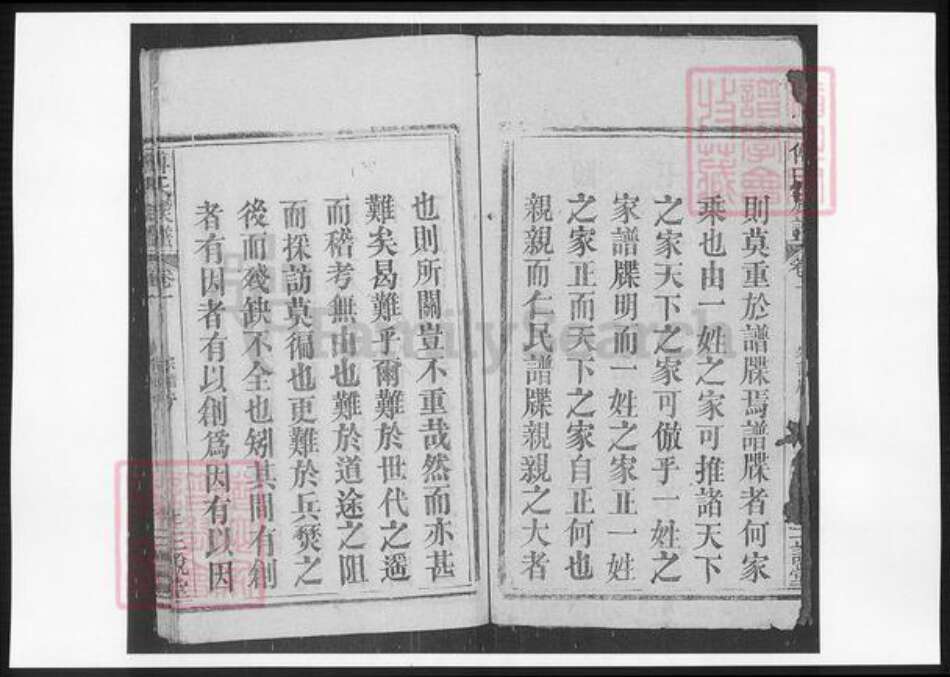 則莫重於譜牒焉譜牒者何家
乘也由一姓之家可推諸天下
之家天下之家可倣乎一姓之
家譜牒明而一姓之家正一姓
之家正而天下之家自正何也
親親而仁民譜牒親親之大者
也則所關豈不重哉然而亦甚
難矣曷難乎爾難於世代之遥
而稽考無由也難於道途之阻
而採訪莫徧也更難於兵燹之
後而殘缺不全也矧其間有創
者有因者有以創爲因有以因
傅氏家譜
卷一
FamilySearch